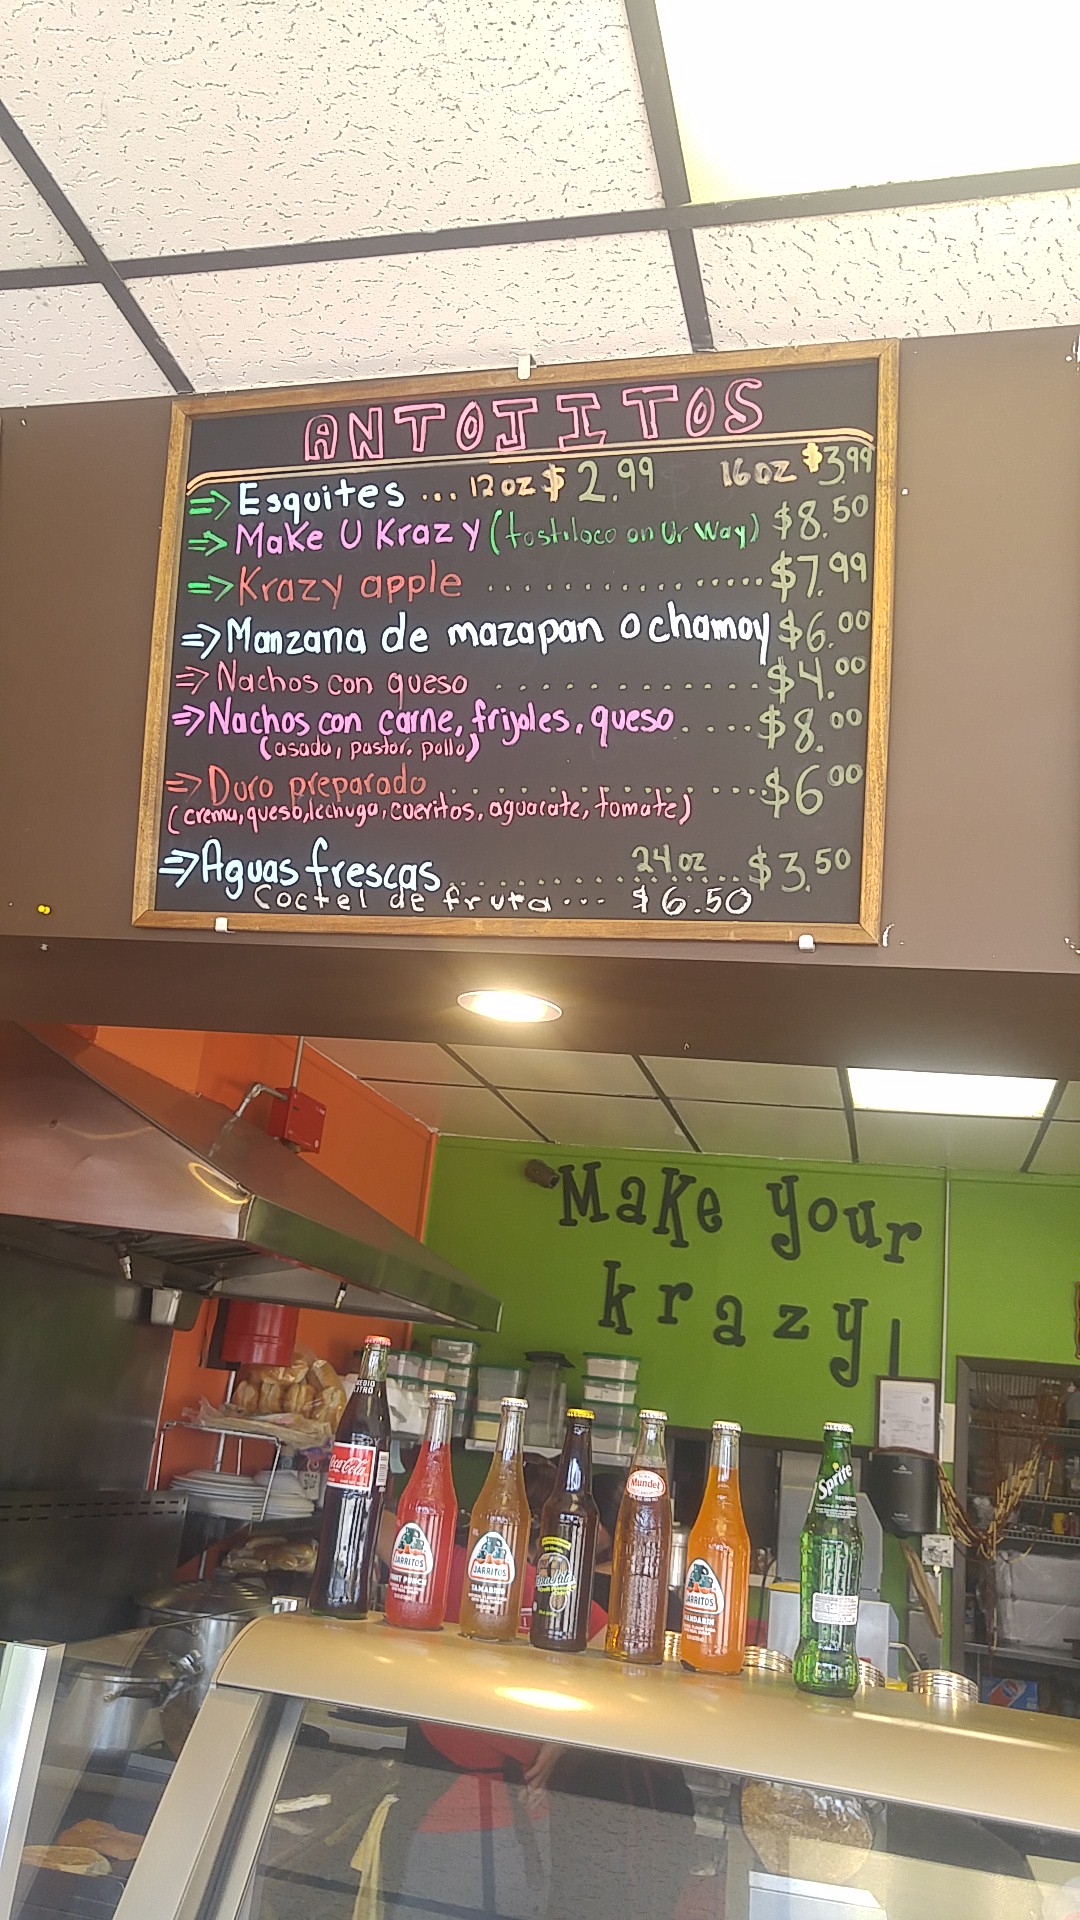 ANTOJITOS
⇒ Esquites ... 12oz $2.99 16oz $3.99
⇒ Make U Krazy (tostiloco on Ur Way) $8.50
⇒ Krazy apple ................ $7.99
⇒ Manzana de mazapan o chamoy $6.00
⇒ Nachos con queso ............. $4.00
⇒ Nachos con carne, frijoles, queso .... $8.00
(asada, pastor, pollo)
⇒ Duro preparado ............. $6.00
(crema, queso, lechuga, cueritos, aguacate, tomate)
⇒ Aguas frescas ............ 24oz ... $3.50
Coctel de fruta ... $6.50
Make your
krazy!
MEDIO
LITRO
Coca-Cola
JARRITOS
JARRITOS
TAMARIND
Mundet
JARRITOS
MANDARIN
Sprite